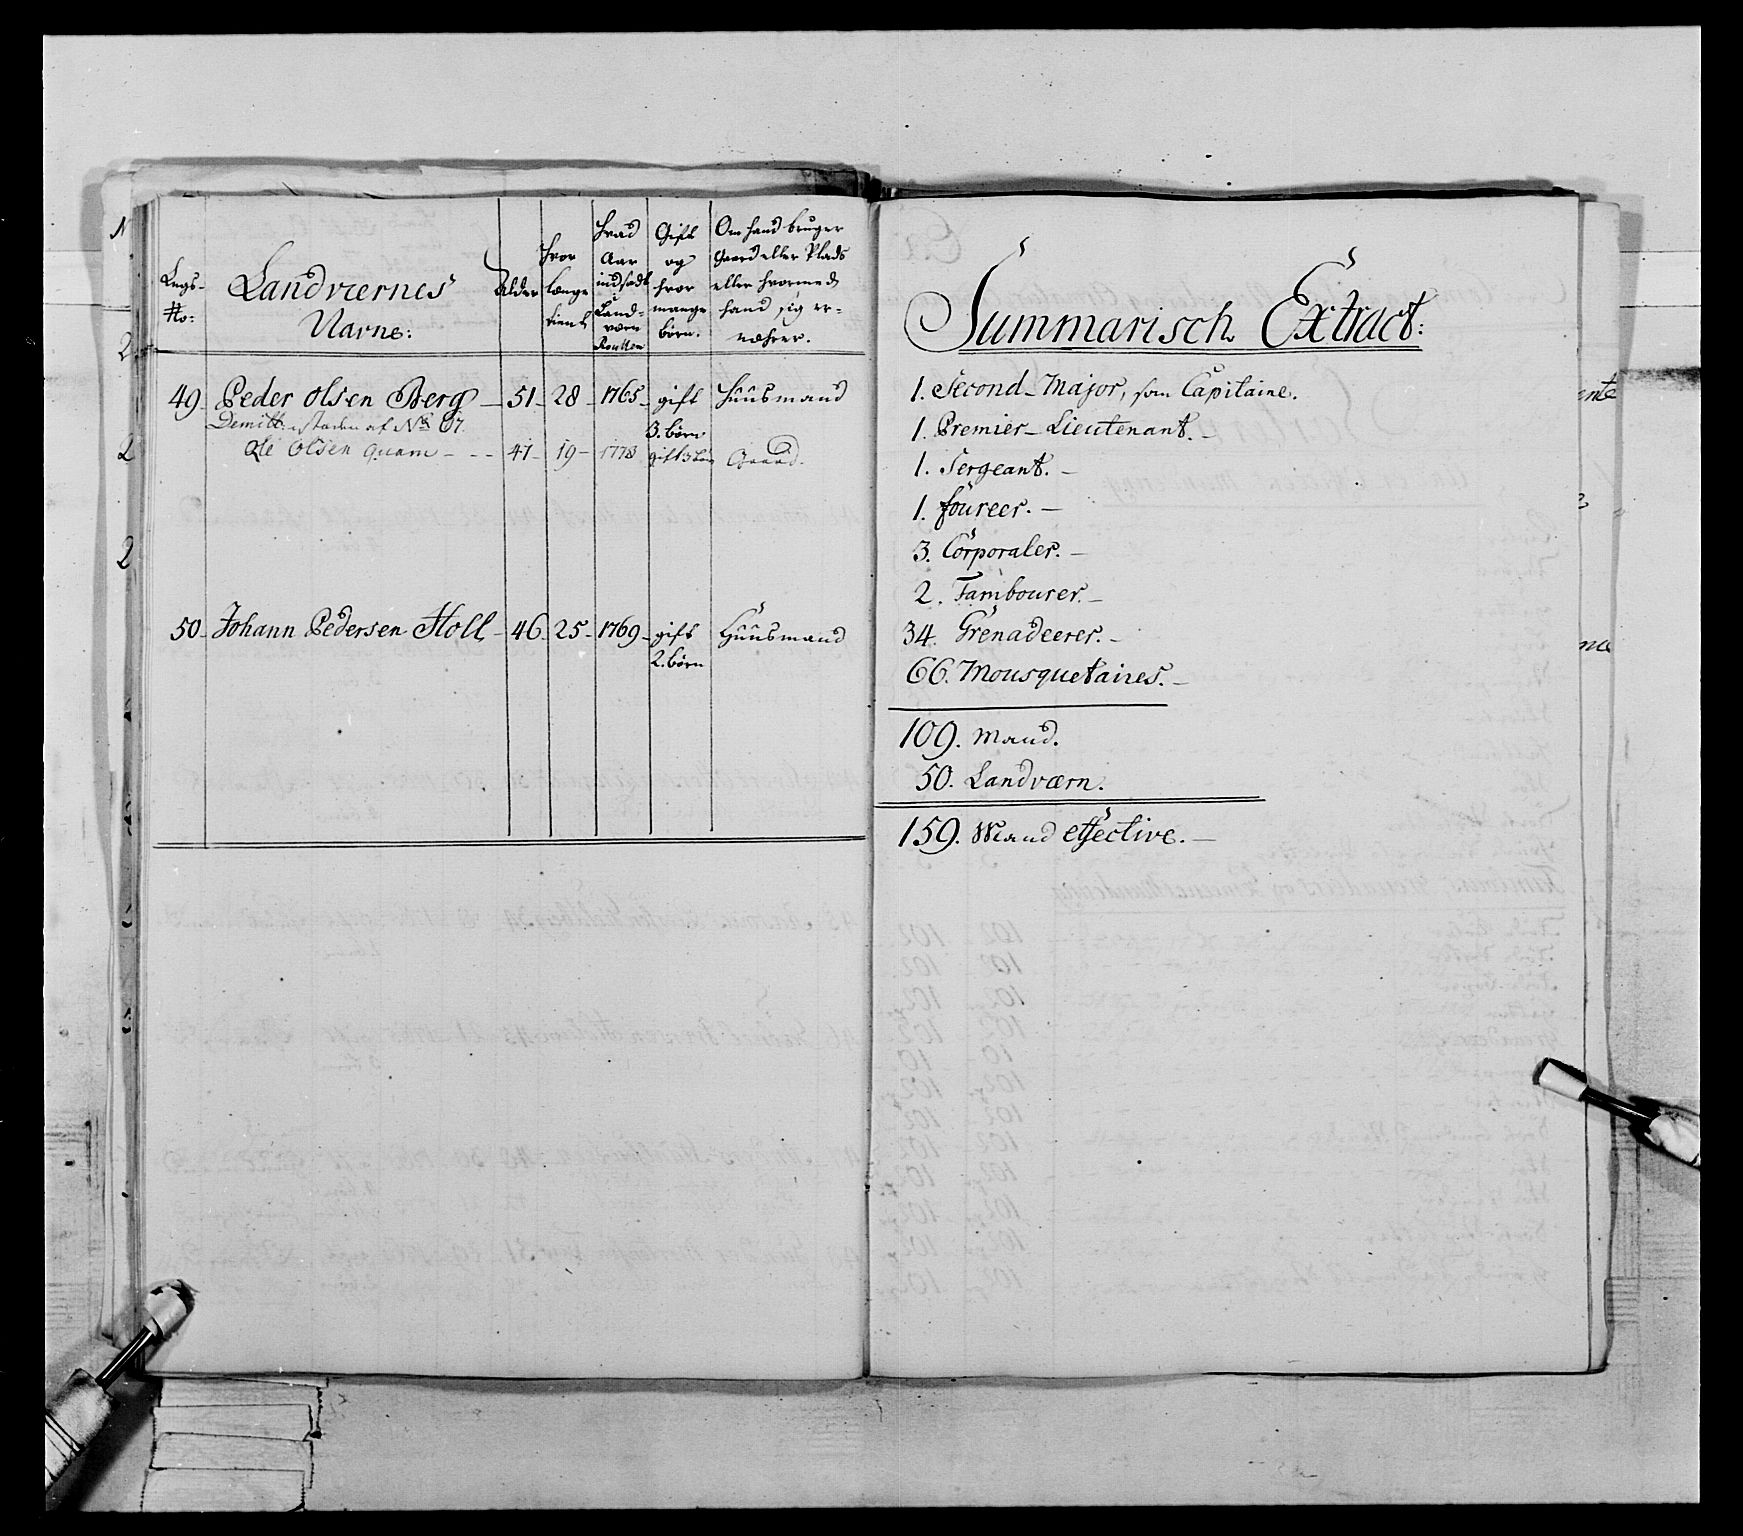 Legs-
No:
Landværnes
Navne:
Alder
hvor
længe
tient
hvad
Aar
indsadt
i
Land-
værn
Roullen
Gift
og
hvor
mange
børn.
Om hand bruger
Gaard eller Plads
eller hvormed
hand sig er-
nærer.
49. Peder Olsen Berg – 51 – 28 – 1765 – gift Huusmand
3. børn
Demitt: i staden af No 67.
Ole Olsen Quam – – – 41 – 19 – 1773 gift 3 børn Gaard.
50. Johann Pedersen Holl – 46 – 25 – 1769 – gift Huusmand
2. børn
Summarisch Extract:
1. Second-Major, som Capitaine.
1. Premier-Lieutenant. –
1. Sergeant. –
1. foureer. –
3. Corporaler. –
2. Tambourer. –
34. Grenadeerer. –
66. Mousquetaires. –
109. Mand.
50. Landværn.
159. Mand effective. –